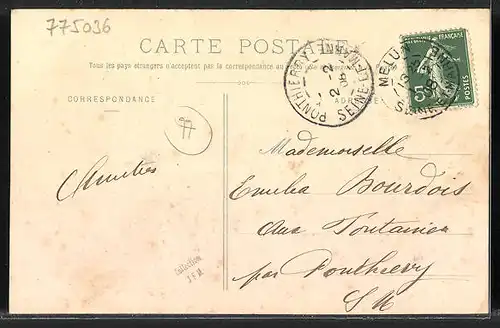 775036
CARTE POSTALE
Tous les pays étrangers n'acceptent pas la correspondance au
CORRESPONDANCE
PONTHIERRY
SEINE ET MARNE
MELUN
FRANÇAISE
POSTES
5
77
Amitiés
Mademoiselle
Emilia Bourdois
Aux Fontaines
par Ponthierry
S M
Collection